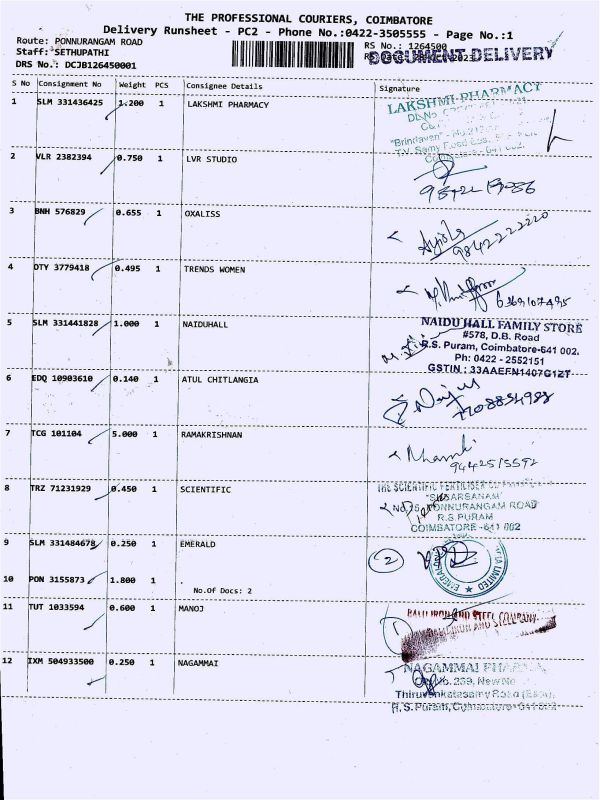 THE PROFESSIONAL COURIERS, COIMBATORE
Delivery Runsheet - PC2 - Phone No.:0422-3505555 - Page No.:1
Route: PONNURANGAM ROAD
RS No.: 1264500
Staff: SETHUPATHI
DOCUMENT DELIVERY
DRS No.: DCJB126450001
S No Consignment No Weight PCS Consignee Details Signature
1 SLM 331436425 1.200 1 LAKSHMI PHARMACY
LAKSHMI PHARMACY
2 VLR 2382394 0.750 1 LVR STUDIO
3 BNH 576829 0.655 1 OXALISS
9842222220
4 DTY 3779418 0.495 1 TRENDS WOMEN
6369107495
5 SLM 331441828 1.000 1 NAIDUHALL
NAIDU HALL FAMILY STORE
#578, D.B. Road
R.S. Puram, Coimbatore-641 002.
Ph: 0422 - 2552151
GSTIN : 33AAEFN1407G1ZT
6 EDQ 10903610 0.140 1 ATUL CHITLANGIA
7 TCG 101104 5.000 1 RAMAKRISHNAN
8 TRZ 71231929 0.450 1 SCIENTIFIC
THE SCIENTIFIC FERTILISER
PONNURANGAM ROAD
R.S.PURAM
COIMBATORE -641 002
9 SLM 331484678 0.250 1 EMERALD
2
10 PON 3155873 1.800 1
No.Of Docs: 2
11 TUT 1033594 0.600 1 MANOJ
12 IXM 504933500 0.250 1 NAGAMMAI
NAGAMMAI
Thiruvenkatasamy Road (East),
R.S. Puram, Coimbatore-641 002